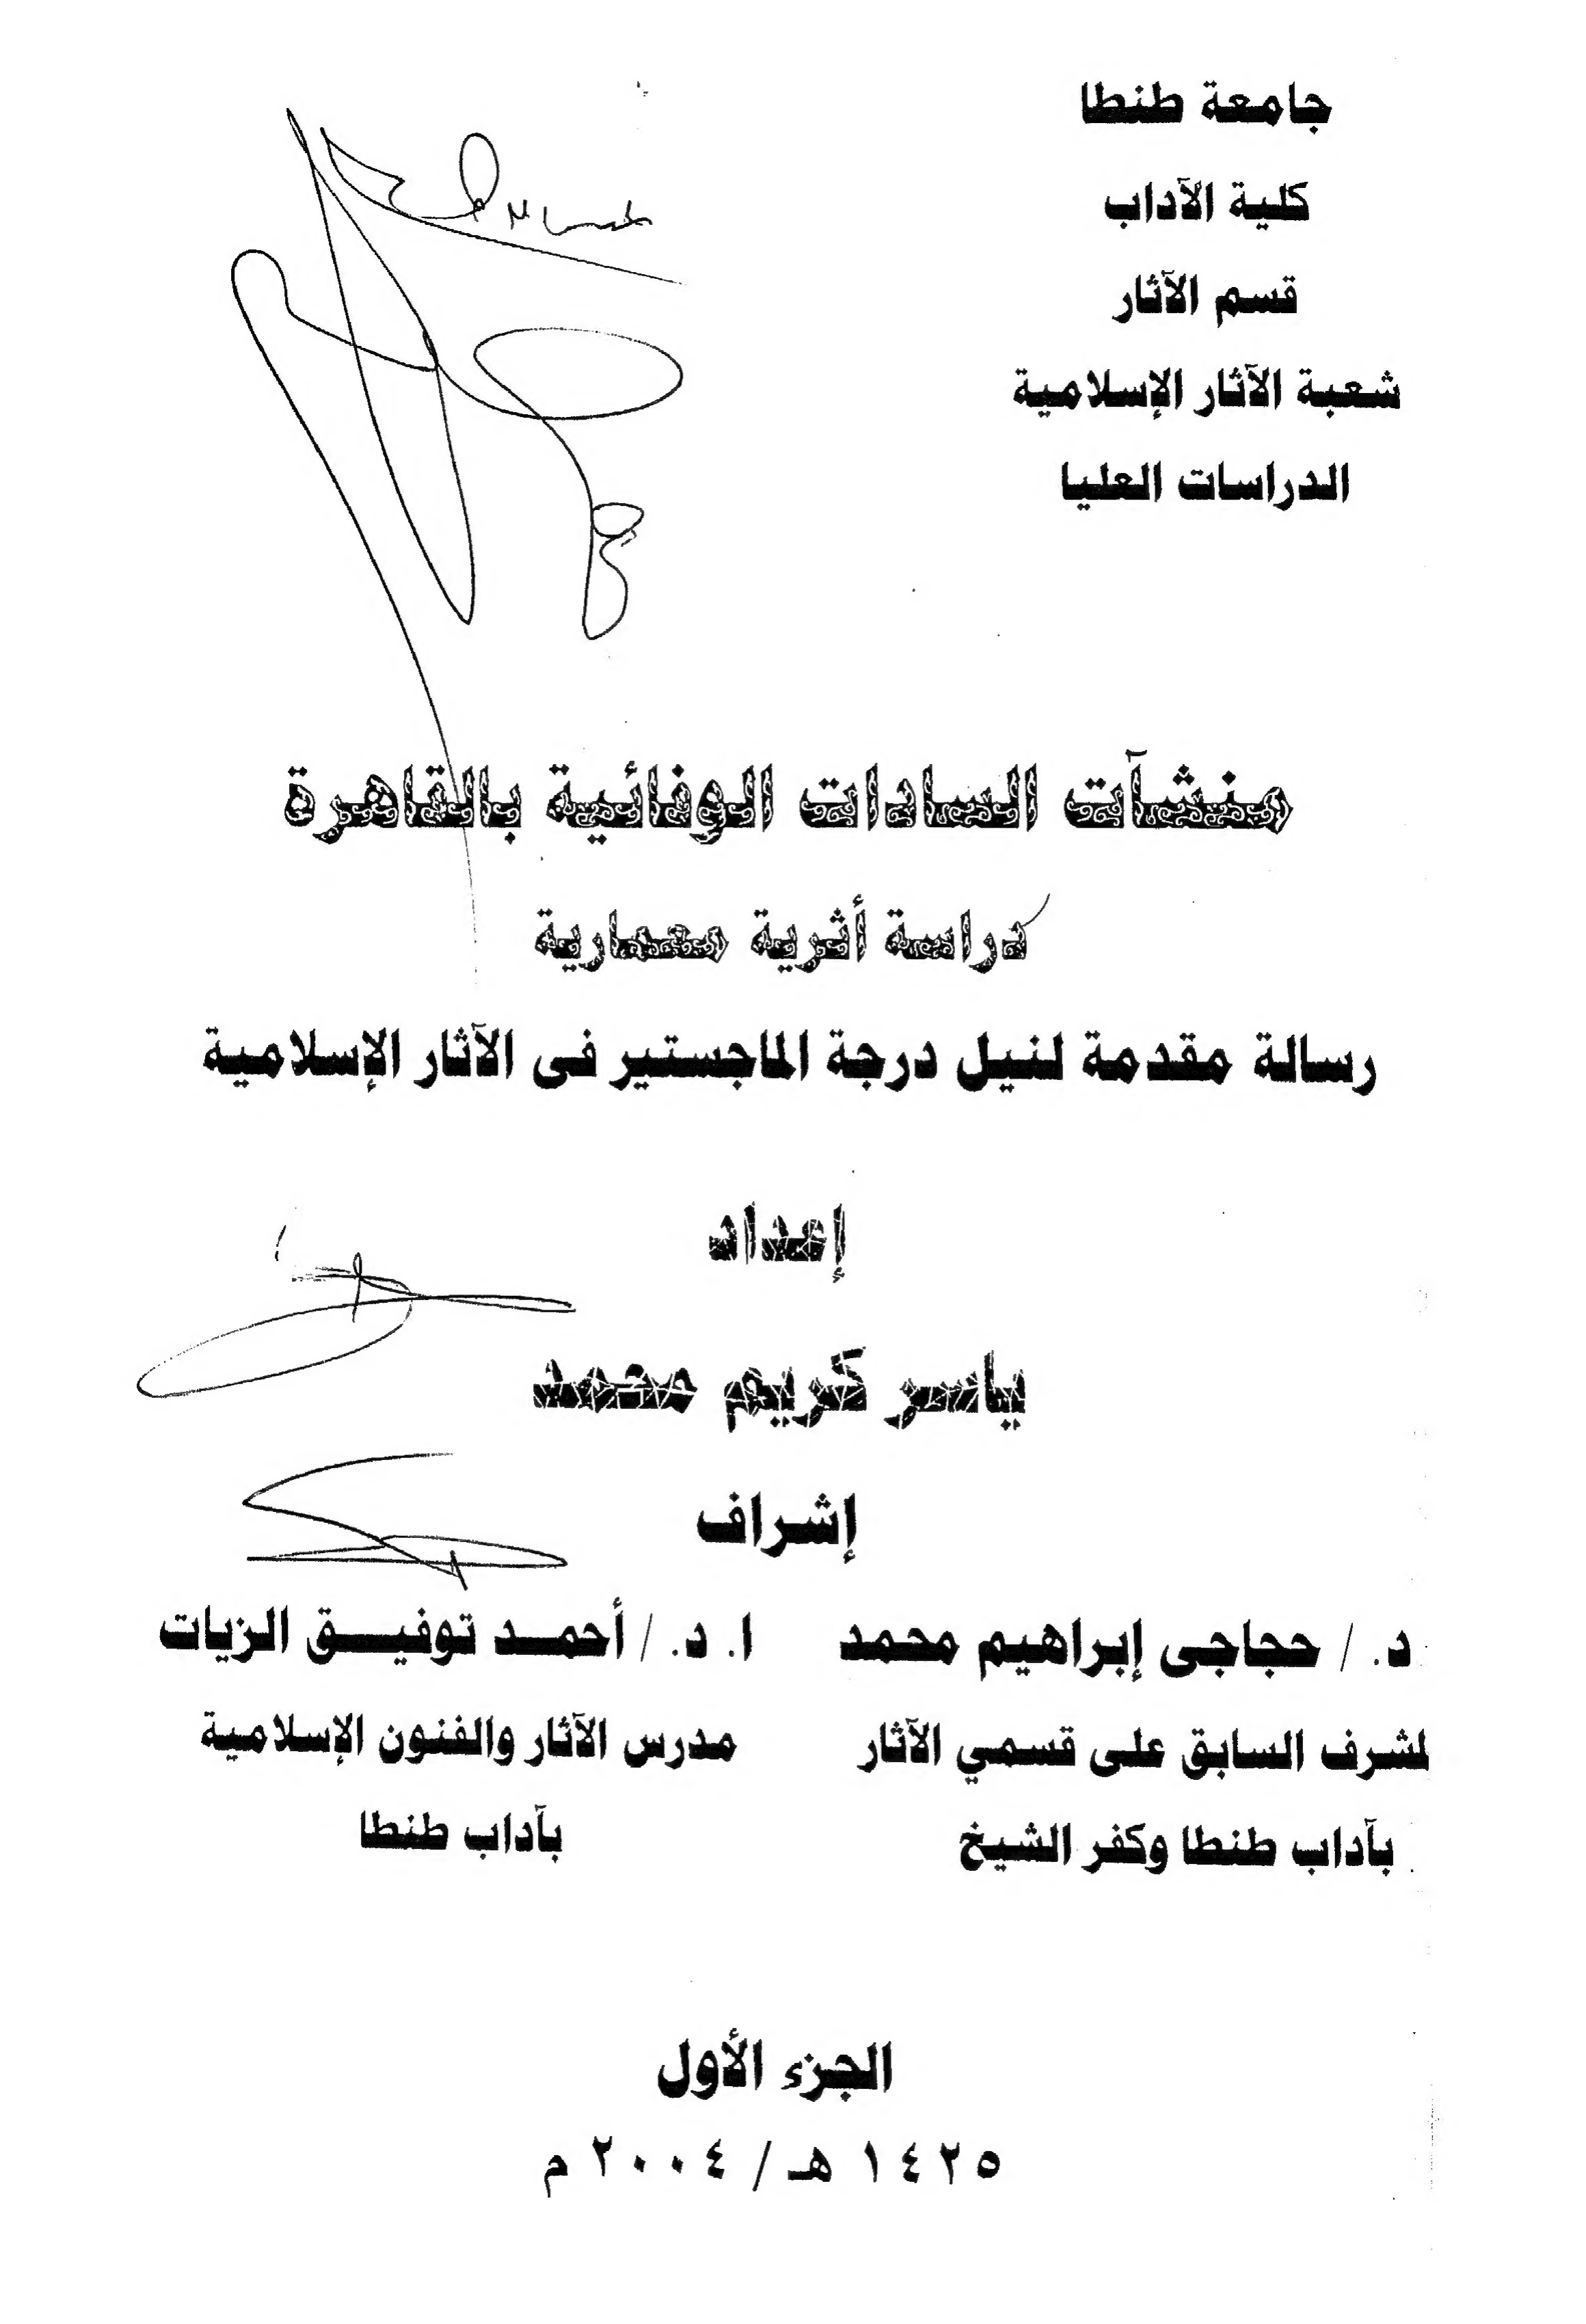 جامعة طنطا
كلية الآداب
قسم الآثار
شعبة الآثار الإسلامية
الدراسات العليا
منشآت السادات الوفائية بالقاهرة
دراسة أثرية معمارية
رسالة مقدمة لنيل درجة الماجستير فى الآثار الإسلامية
إعداد
ياسر كريم محمد
إشراف
د. / حجاجى إبراهيم محمد
لمشرف السابق على قسمي الآثار
بآداب طنطا وكفر الشيخ
ا. د. / أحمد توفيق الزيات
مدرس الآثار والفنون الإسلامية
بآداب طنطا
الجزء الأول
١٤٢٥ هـ / ٢٠٠٤ م